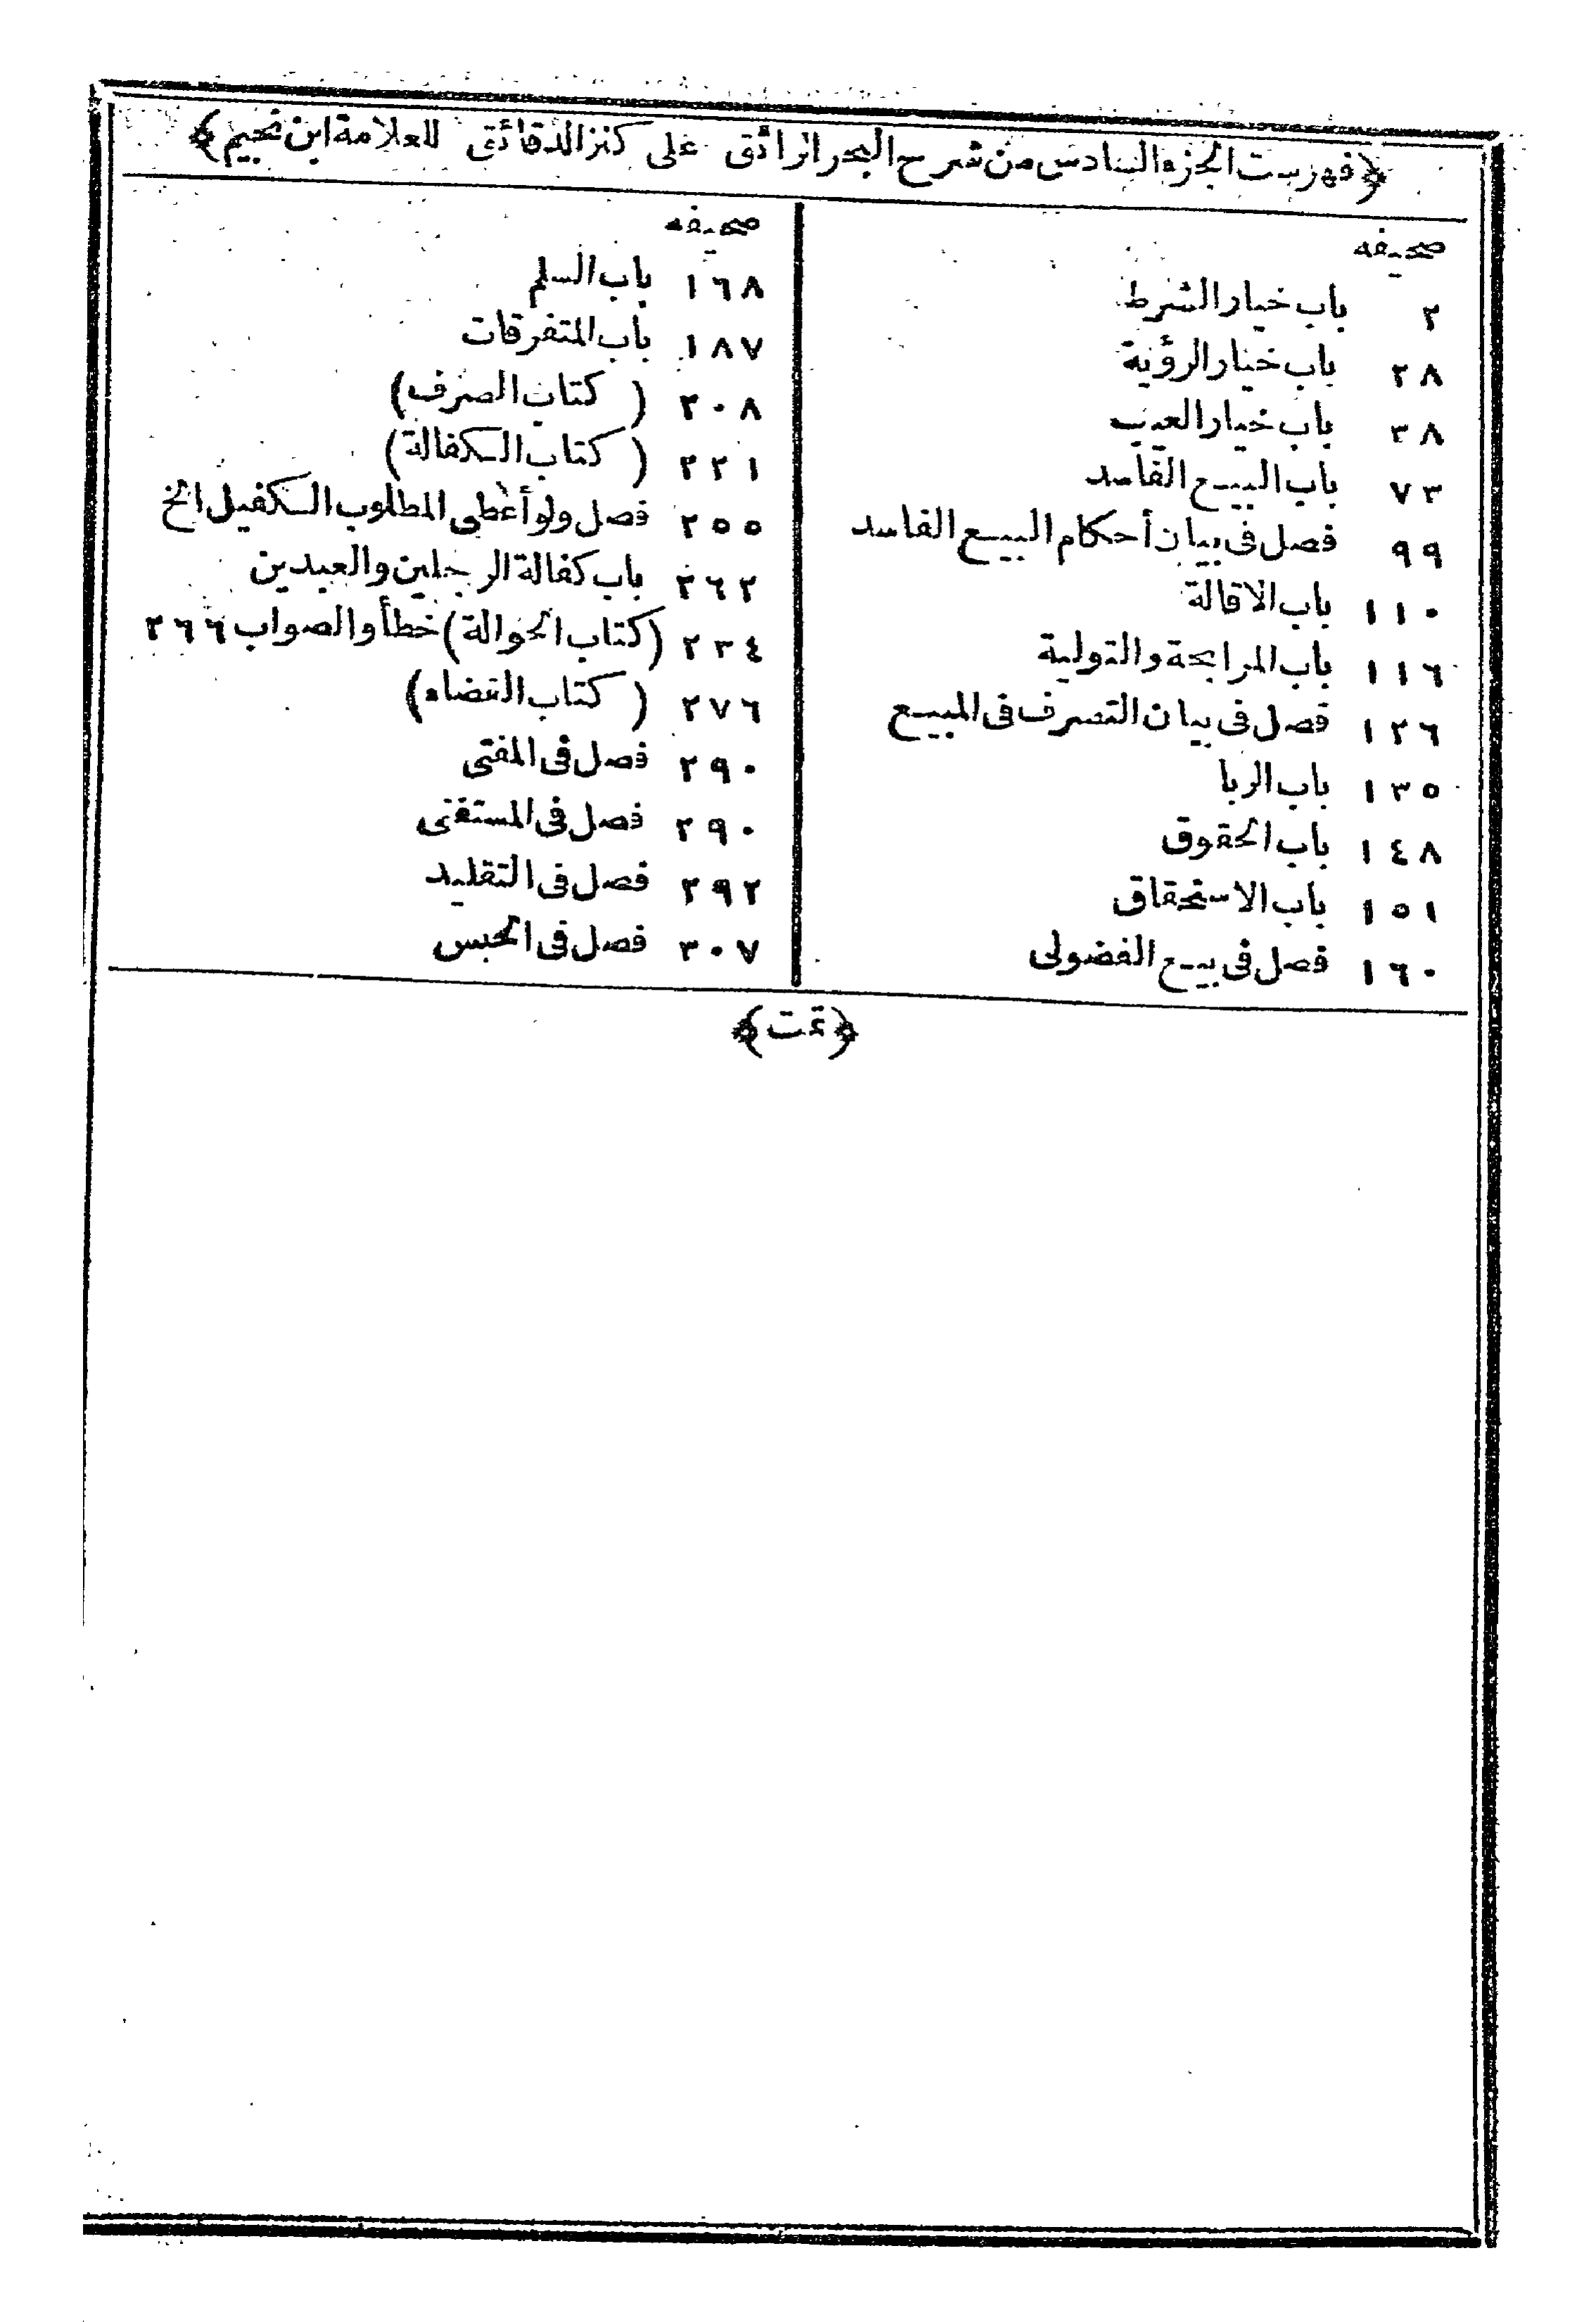 ﴿فهرست الجزء السادس من شرح البحر الرائق على كنز الدقائق للعلامة ابن نجيم﴾
صحيفه
٢ باب خيار الشرط
٢٨ باب خيار الرؤية
٣٨ باب خيار العيب
٧٣ باب البيع الفاسد
٩٩ فصل فى بيان أحكام البيع الفاسد
١١٠ باب الاقالة
١١٦ باب المرابحة والتولية
١٢٦ فصل فى بيان التصرف فى المبيع
١٣٥ باب الربا
١٤٨ باب الحقوق
١٥١ باب الاستحقاق
١٦٠ فصل فى بيع الفضولى
صحيفه
١٦٨ باب السلم
١٨٧ باب المتفرقات
٢٠٨ (كتاب الصرف)
٢٢١ (كتاب الكفالة)
٢٥٥ فصل ولو أعطى المطلوب الكفيل الخ
٢٦٢ باب كفالة الرجلين والعبدين
٢٣٤ (كتاب الحوالة) خطأ والصواب ٢٦٦
٢٧٦ (كتاب القضاء)
٢٩٠ فصل فى المفتى
٢٩٠ فصل فى المستفتى
٢٩٢ فصل فى التقليد
٣٠٧ فصل فى الحبس
﴿تمت﴾